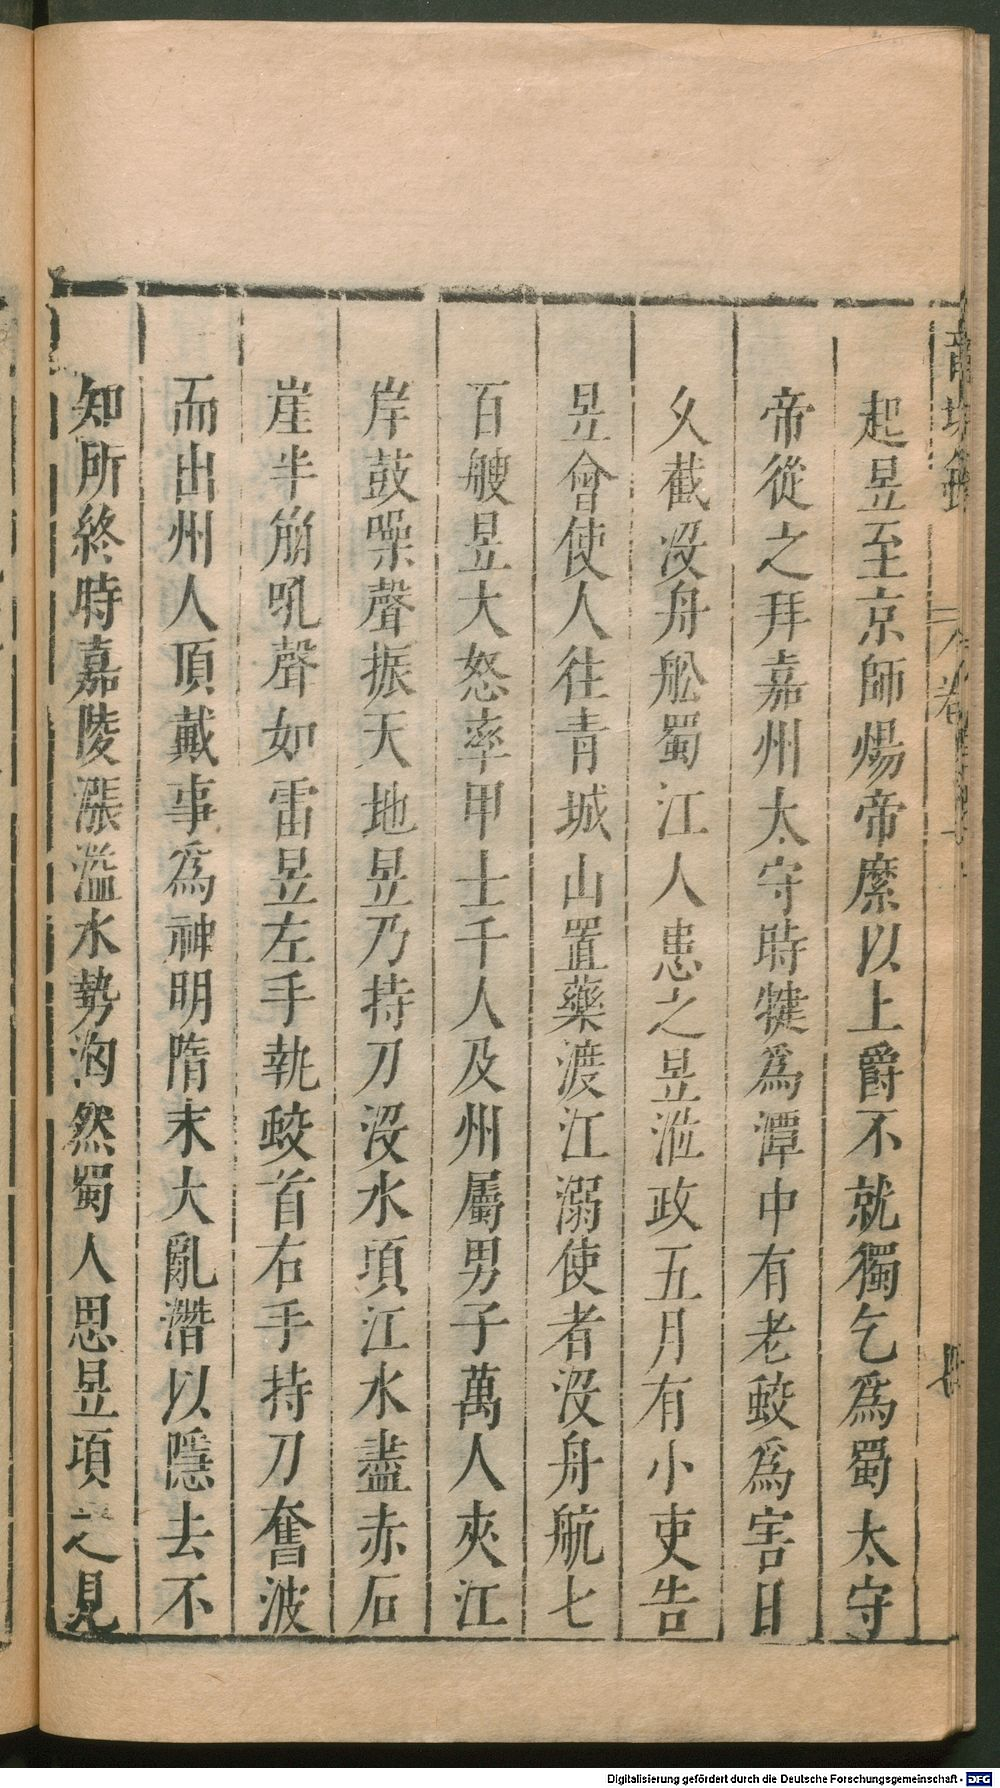 起昱至京師煬帝縻以上爵不就獨乞為蜀太守
帝從之拜嘉州太守時犍為潭中有老蛟為害日
久截沒舟舩蜀江人患之昱涖政五月有小吏告
昱會使人往青城山置藥渡江溺使者沒舟航七
百艘昱大怒率甲士千人及州屬男子萬人夾江
岸鼓噪聲振天地昱乃持刀沒水頃江水盡赤石
崖半崩吼聲如雷昱左手執蛟首右手持刀奮波
而出州人頂戴事為神明隋末大亂潛以隱去不
知所終時嘉陵漲溢水勢洶然蜀人思昱頃之見
Digitalisierung gefördert durch die Deutsche Forschungsgemeinschaft - DFG